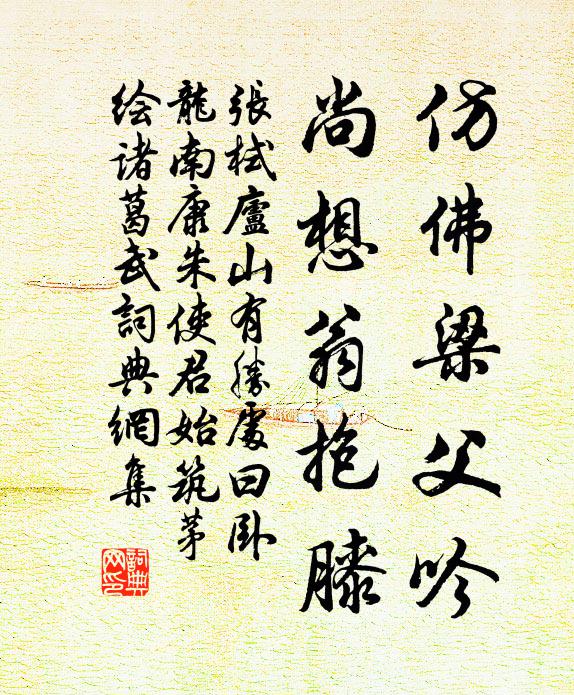 仿佛梁父吟
尚想翁抱膝
張栻廬山有勝處曰卧
龍南康朱使君始筑茅
绘諸葛武詞典網集
詞典
网印